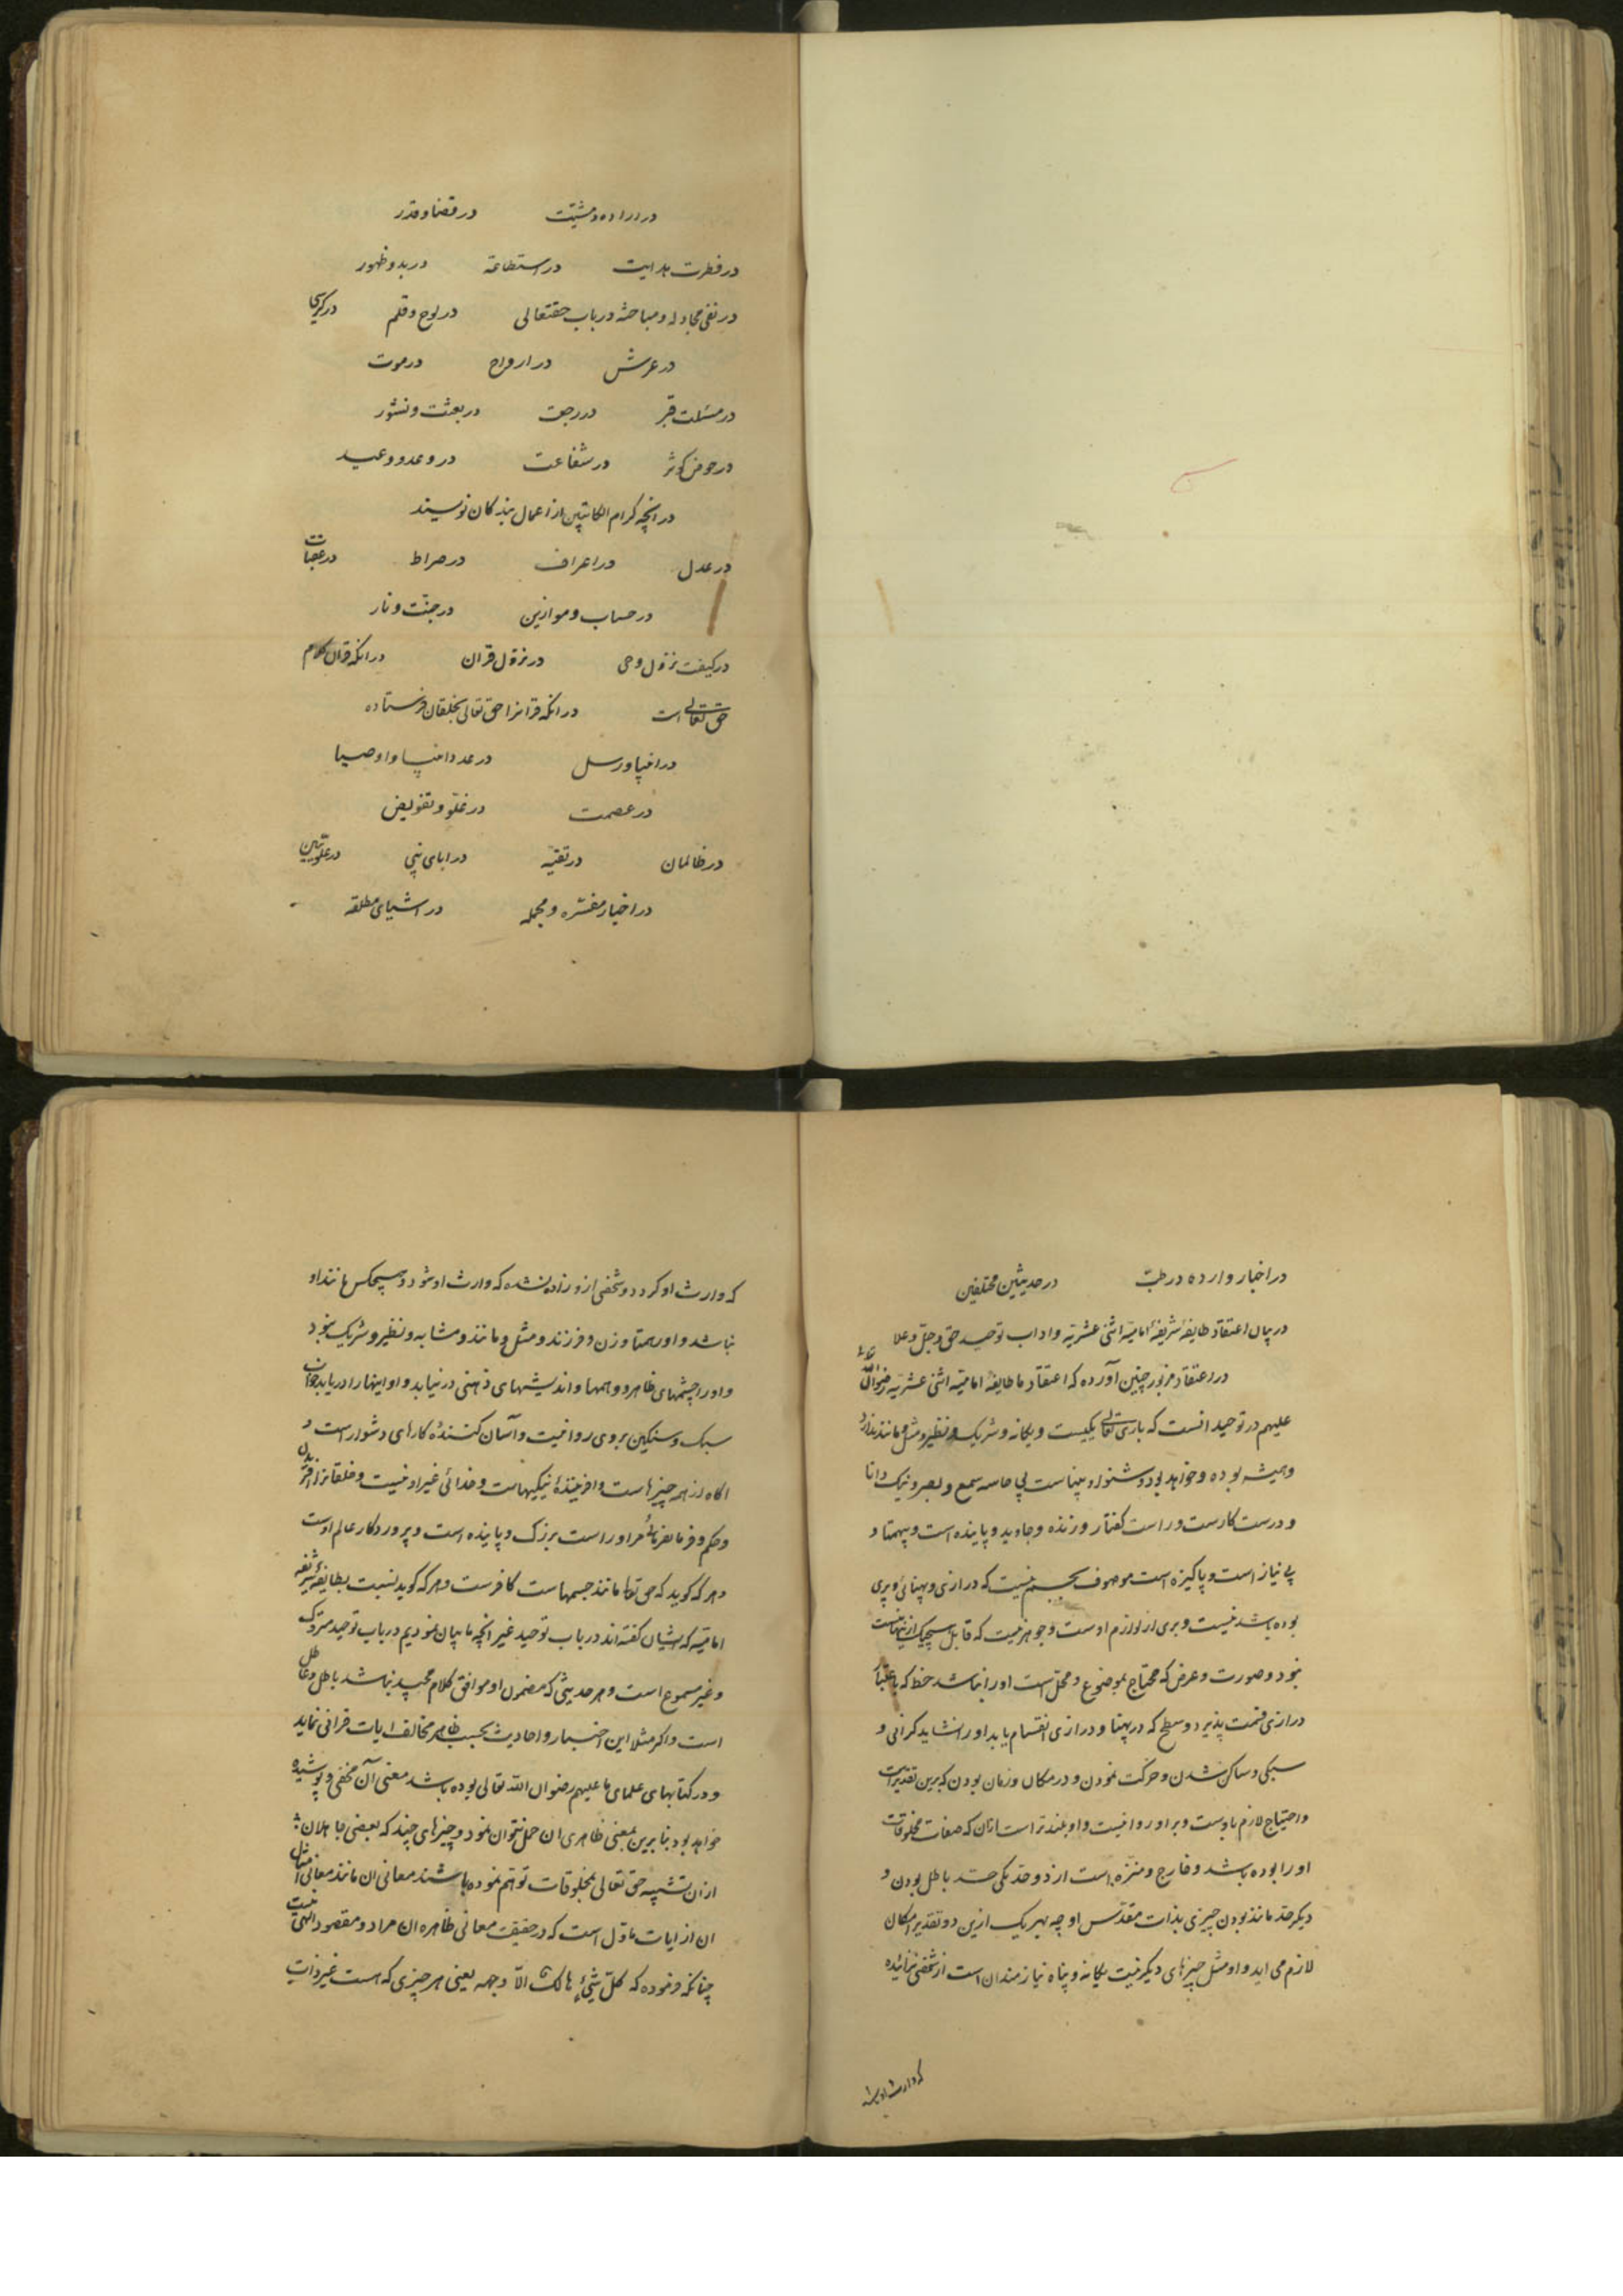 در اراده و مشیّت در قضا و قدر
در فطرت هدایت در استطاعة در بدو ظهور
در نفی مجادله و مباحثه در باب حقتعالی در لوح و قلم در کرسی
در عرش در ارواح در موت
در مسئلت قبر در رجعت در بعثت و نشور
در حوض کوثر در شفاعت در وعد و وعید
در انچه کرام الکاتبین از اعمال بندکان نویسند
در عدل در اعراف در صراط در عقبات
در حساب و موازین در جنّت و نار
در کیفت نزول وحی در نزول قران در انکه قران کلام
حق تعالی است در انکه قرانرا حق تعالی بخلقان فرستاده
در انبیا و رسل در عدد انبیا و اوصیا
در عصمت در غلوّ و تفویض
در ظالمان در تقیّه در ابای نبی در علویین
در اخبار مفسّره و مجمله در اشیای مطلقه
در اخبار وارده در طبّ در حدیثین مختلفین
در بیان اعتقاد طایفهٔ شریفهٔ امامیّه اثنی عشریّه و اداب توحید حق و جلّ و علا
در اعتقاد مزبور چنین آورده که اعتقاد ما طایفهٔ امامیّه اثنی عشریّه رضوان الله
علیهم در توحید انست که باری تعالی یکیست و یکانه و شریک و نظیر و مثل و مانند ندارد
و همیشه بوده و خواهد بود و شنوا و بیناست بی حاسه سمع و بصر و نیک دانا
و درست کارست و راست کفتار و زنده و جاوید و پاینده است و بیهمتا و
بی نیاز است و پاکیزه است موصوف بجسم نیست که درازی و پهنائی و پری
بوده باشد نیست و بری از لوازم اوست و جوهر نیست که قابل هیچیک ازینها نیست
نبود و صورت و عرض که محتاج بموضوع و محل است او را نباشد خط که باعتبار
درازی قسمت پذیرد و سطح که در پهنا و درازی انقسام یابد او را نشاید کرانی و
سبکی و ساکن شدن و حرکت نمودن و در مکان و زمان بودن که برین تقدیرات
و احتیاج لازم باوست و بر او روا نیست و او بلندتر است ازان که صفات مخلوقات
او را بوده باشد و خارج و منزّه است از دو حد یکی حد باطل بودن و
دیکر حد مانند بودن چیزی بذات مقدّس او چه بهر یک ازین دو تقدیر امکان
لازم می اید و او مثل چیزهای دیکر نیست یکانه و پناه نیازمندان است از شخصی نزائیده
که وارث او
که وارث او کردد و شخصی ازو زاده نشده که وارث او شود و هیچکس مانند او
نباشد و او را همتا و زن و فرزند و مثل و مانند و مشابه و نظیر و شریک نبود
و او را چشمهای ظاهر و وهمها و اندیشهای ذهنی در نیابد و او اینها را دریابد خواب
سبک و سنکین بر وی روا نیست و آسان کنندهٔ کارهای دشوار است و
اکاه از همه چیزهاست و افرینندهٔ نیکیهاست و خدائی غیر او نیست و خلقانرا افریدن
و حکم و فرمانفرمائی مر او را است بزرک و پاینده است و پروردکار عالم اوست
و هر که کوید که حق تعالی مانند جسمهاست کافرست و هر که کوید نسبت بطایفهٔ شریفه
امامیّه که ایشان کفته اند در باب توحید غیر انچه ما بیان نمودیم در باب توحید متروک
و غیر مسموع است و هر حدیثی که مضمون او موافق کلام مجید نباشد باطل و عاطل
است و اکر مثلا این اخبار و احادیث بحسب ظاهر مخالف ایات قرانی نماید
و در کتابهای علمای ما علیهم رضوان الله تعالی بوده باشد معنی آن مخفی و پوشیده
خواهد بود بنابرین بمعنی ظاهری ان حمل نتوان نمود و چیزهای چند که بعضی جاهلان
ازان تشبیه حق تعالی بمخلوقات توهّم نموده باشند معانی ان مانند معانی امثال
ان از ایات ماوّل است که در حقیقت معانی ظاهره ان مراد و مقصود الهی نیست
چنانکه فرموده که کلّ شیءٍ هالک الّا وجهه یعنی هر چیزی که هست غیر ذات